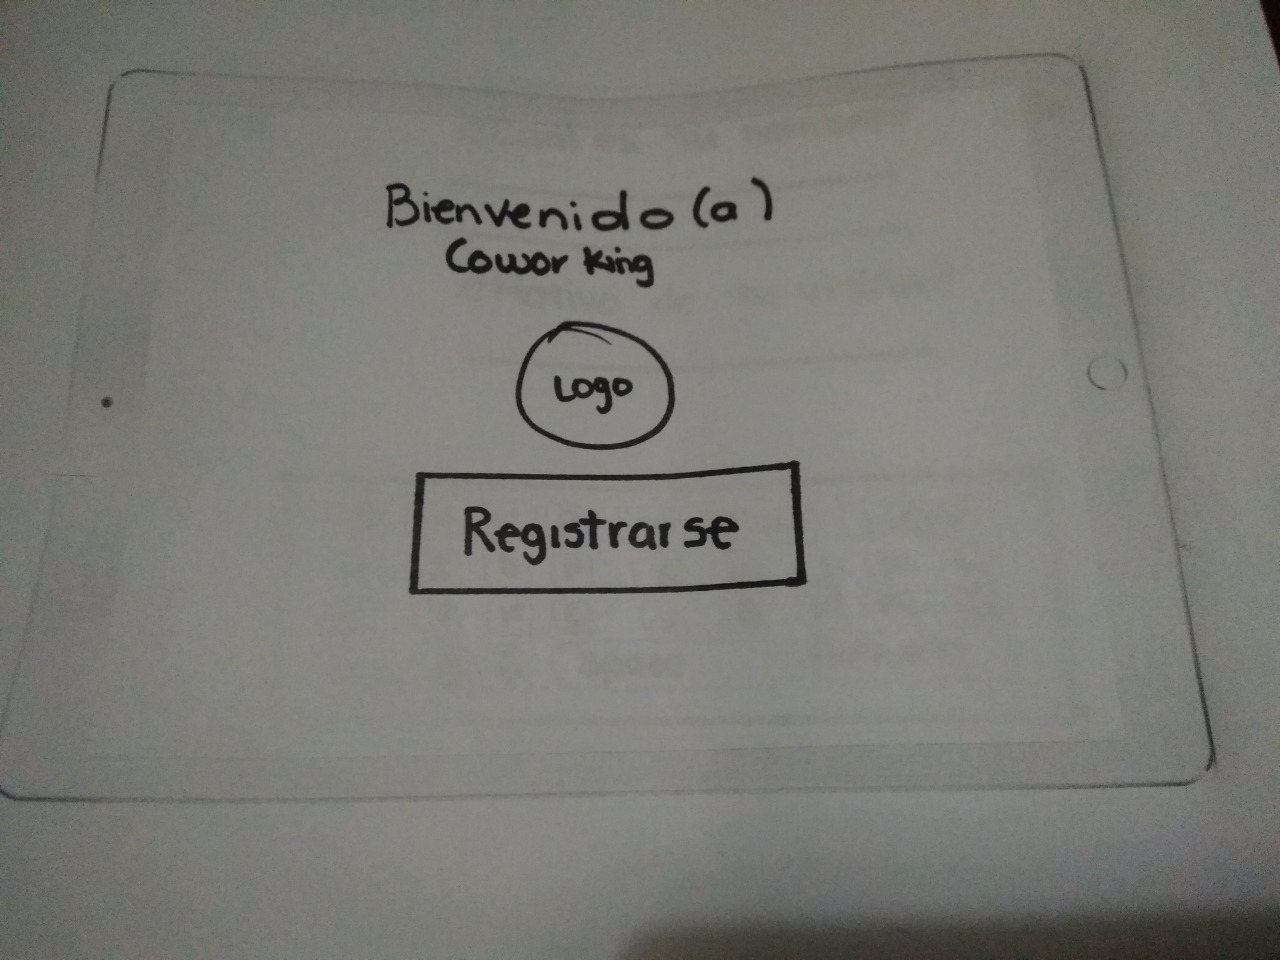 Bienvenido (a)
Coworking
Logo
Registrarse